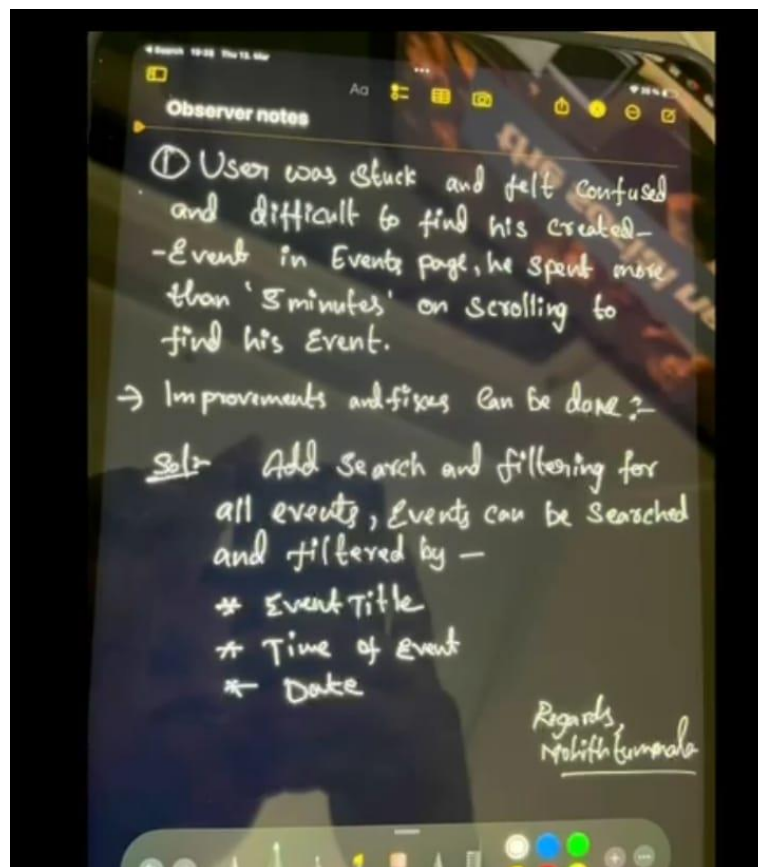 Search 19:38 Thu 13. Mar
Aa
Observer notes
① User was stuck and felt confused
and difficult to find his created-
-Event in Events page, he spent more
than '5 minutes' on scrolling to
find his Event.
→ Improvements and fixes can be done :-
Sol:- Add search and filtering for
all events, Events can be searched
and filtered by -
* Event Title
* Time of Event
* Date
Regards,